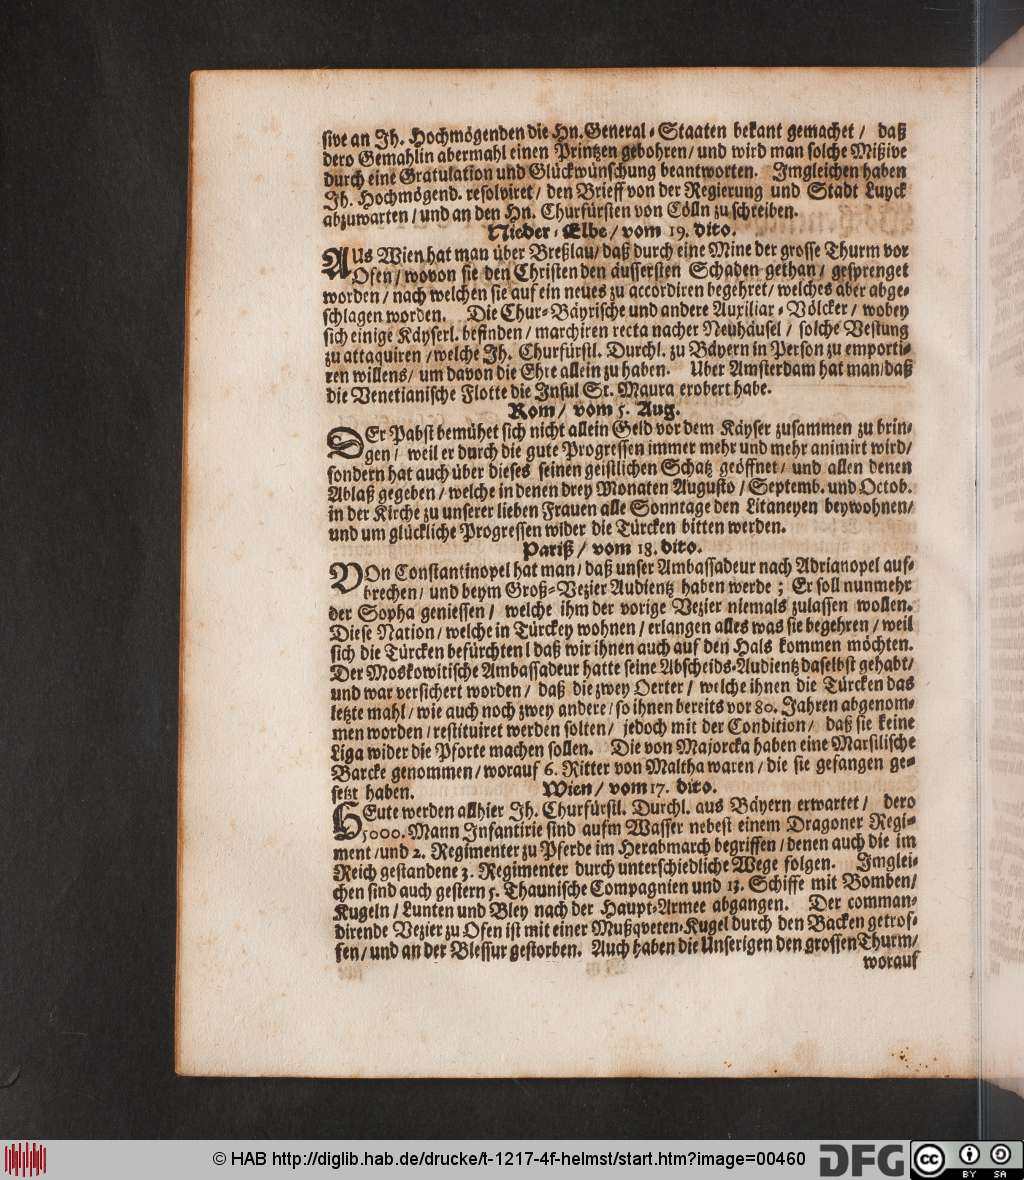 sive an Jh. Hochmögenden die Hn. General-Staaten bekant gemachet / daß
dero Gemahlin abermahl einen Printzen gebohren / und wird man solche Mißive
durch eine Gratulation und Glückwünschung beantworten. Imgleichen haben
Jh. Hochmögend. resolviret / den Brieff von der Regierung und Stadt Luyck
abzuwarten / und an den Hn. Churfürsten von Cölln zu schreiben.
Nieder-Elbe / vom 19. dito.
AUs Wien hat man über Breßlau / daß durch eine Mine der grosse Thurm vor
Ofen / wovon sie den Christen den äussersten Schaden gethan / gesprenget
worden / nach welchen sie auf ein neues zu accordiren begehret / welches aber abge-
schlagen worden. Die Chur-Bäyrische und andere Auxiliar-Völcker / wobey
sich einige Käyserl. befinden / marchiren recta nacher Neuhäusel / solche Vestung
zu attaquiren / welche Jh. Churfürstl. Durchl. zu Bäyern in Person zu emporti-
ren willens / um davon die Ehre allein zu haben. Uber Amsterdam hat man / daß
die Venetianische Flotte die Insul St. Maura erobert habe.
Rom / vom 5. Aug.
DEr Pabst bemühet sich nicht allein Geld vor dem Käyser zusammen zu brin-
gen / weil er durch die gute Progressen immer mehr und mehr animirt wird /
sondern hat auch über dieses seinen geistlichen Schatz geöffnet / und allen denen
Ablaß gegeben / welche in denen drey Monaten Augusto / Septemb. und Octob.
in der Kirche zu unserer lieben Frauen alle Sonntage den Litaneyen beywohnen /
und um glückliche Progressen wider die Türcken bitten werden.
Pariß / vom 18. dito.
VOn Constantinopel hat man / daß unser Ambassadeur nach Adrianopel auf-
brechen / und beym Groß-Vezier Audientz haben werde ; Er soll nunmehr
der Sopha geniessen / welche ihm der vorige Vezier niemals zulassen wollen.
Diese Nation / welche in Türckey wohnen / erlangen alles was sie begehren / weil
sich die Türcken befürchten l daß wir ihnen auch auf den Hals kommen möchten.
Der Moskowitische Ambassadeur hatte seine Abscheids-Audientz daselbst gehabt /
und war versichert worden / daß die zwey Oerter / welche ihnen die Türcken das
letzte mahl / wie auch noch zwey andere / so ihnen bereits vor 80. Jahren abgenom-
men worden / restituiret werden solten / jedoch mit der Condition / daß sie keine
Liga wider die Pforte machen sollen. Die von Majorcka haben eine Marsilische
Barcke genommen / worauf 6. Ritter von Maltha waren / die sie gefangen ge-
setzt haben. Wien / vom 17. dito.
HEute werden allhier Jh. Churfürstl. Durchl. aus Bäyern erwartet / dero
5000. Mann Infantirie sind aufm Wasser nebest einem Dragoner Regi-
ment / und 2. Regimenter zu Pferde im Herabmarch begriffen / denen auch die im
Reich gestandene 3. Regimenter durch unterschiedliche Wege folgen. Imglei-
chen sind auch gestern 5. Thaunische Compagnien und 13. Schiffe mit Bomben /
Kugeln / Lunten und Bley nach der Haupt-Armee abgangen. Der comman-
dirende Vezier zu Ofen ist mit einer Mußqveten-Kugel durch den Backen getrof-
fen / und an der Blessur gestorben. Auch haben die Unserigen den grossen Thurm /
worauf
© HAB http://diglib.hab.de/drucke/t-1217-4f-helmst/start.htm?image=00460
DFG
cc
BY SA